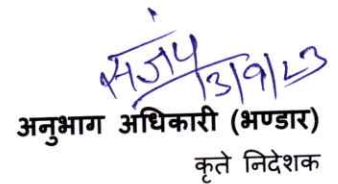 संजय
13/9/23
अनुभाग अधिकारी (भण्डार)
कृते निदेशक